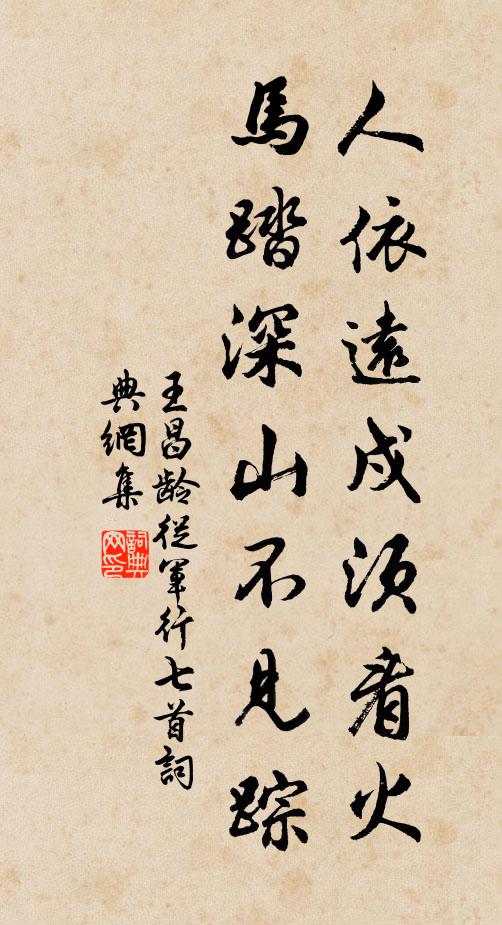 人依遠戍須看火
馬踏深山不見踪
王昌齡從軍行七首詞
典網集
詞典网印